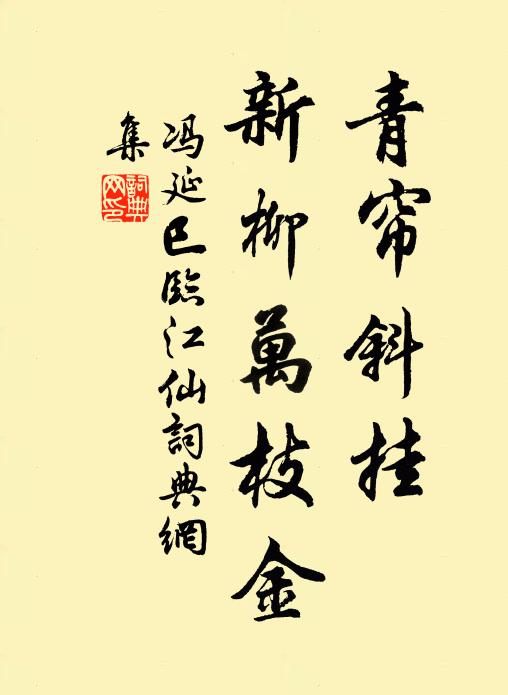 青帘斜挂
新柳萬枝金
冯延巳臨江仙詞典網
集
詞典
网印